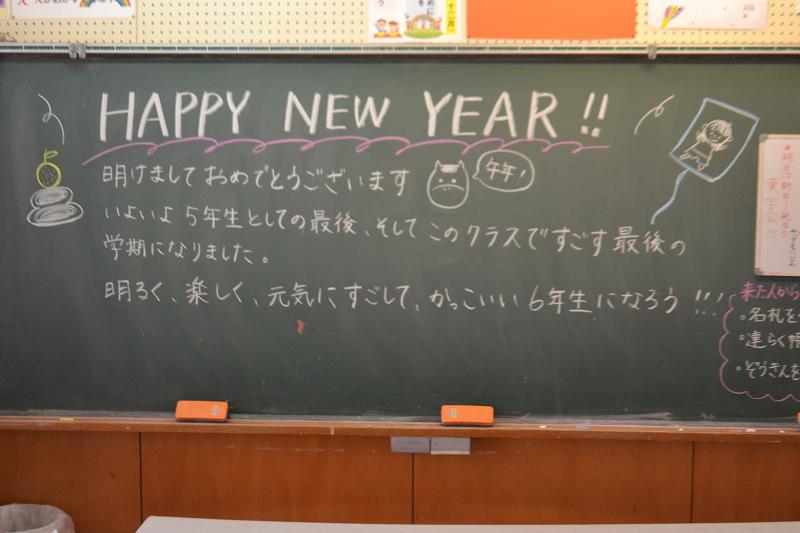 HAPPY NEW YEAR!!
明けましておめでとうございます
午年!
いよいよ5年生としての最後、そしてこのクラスですごす最後の
学期になりました。
明るく、楽しく、元気にすごして、かっこいい6年生になろう!!!
来た人から
・名札を
・連らく帳
・ぞうきんを
十二月